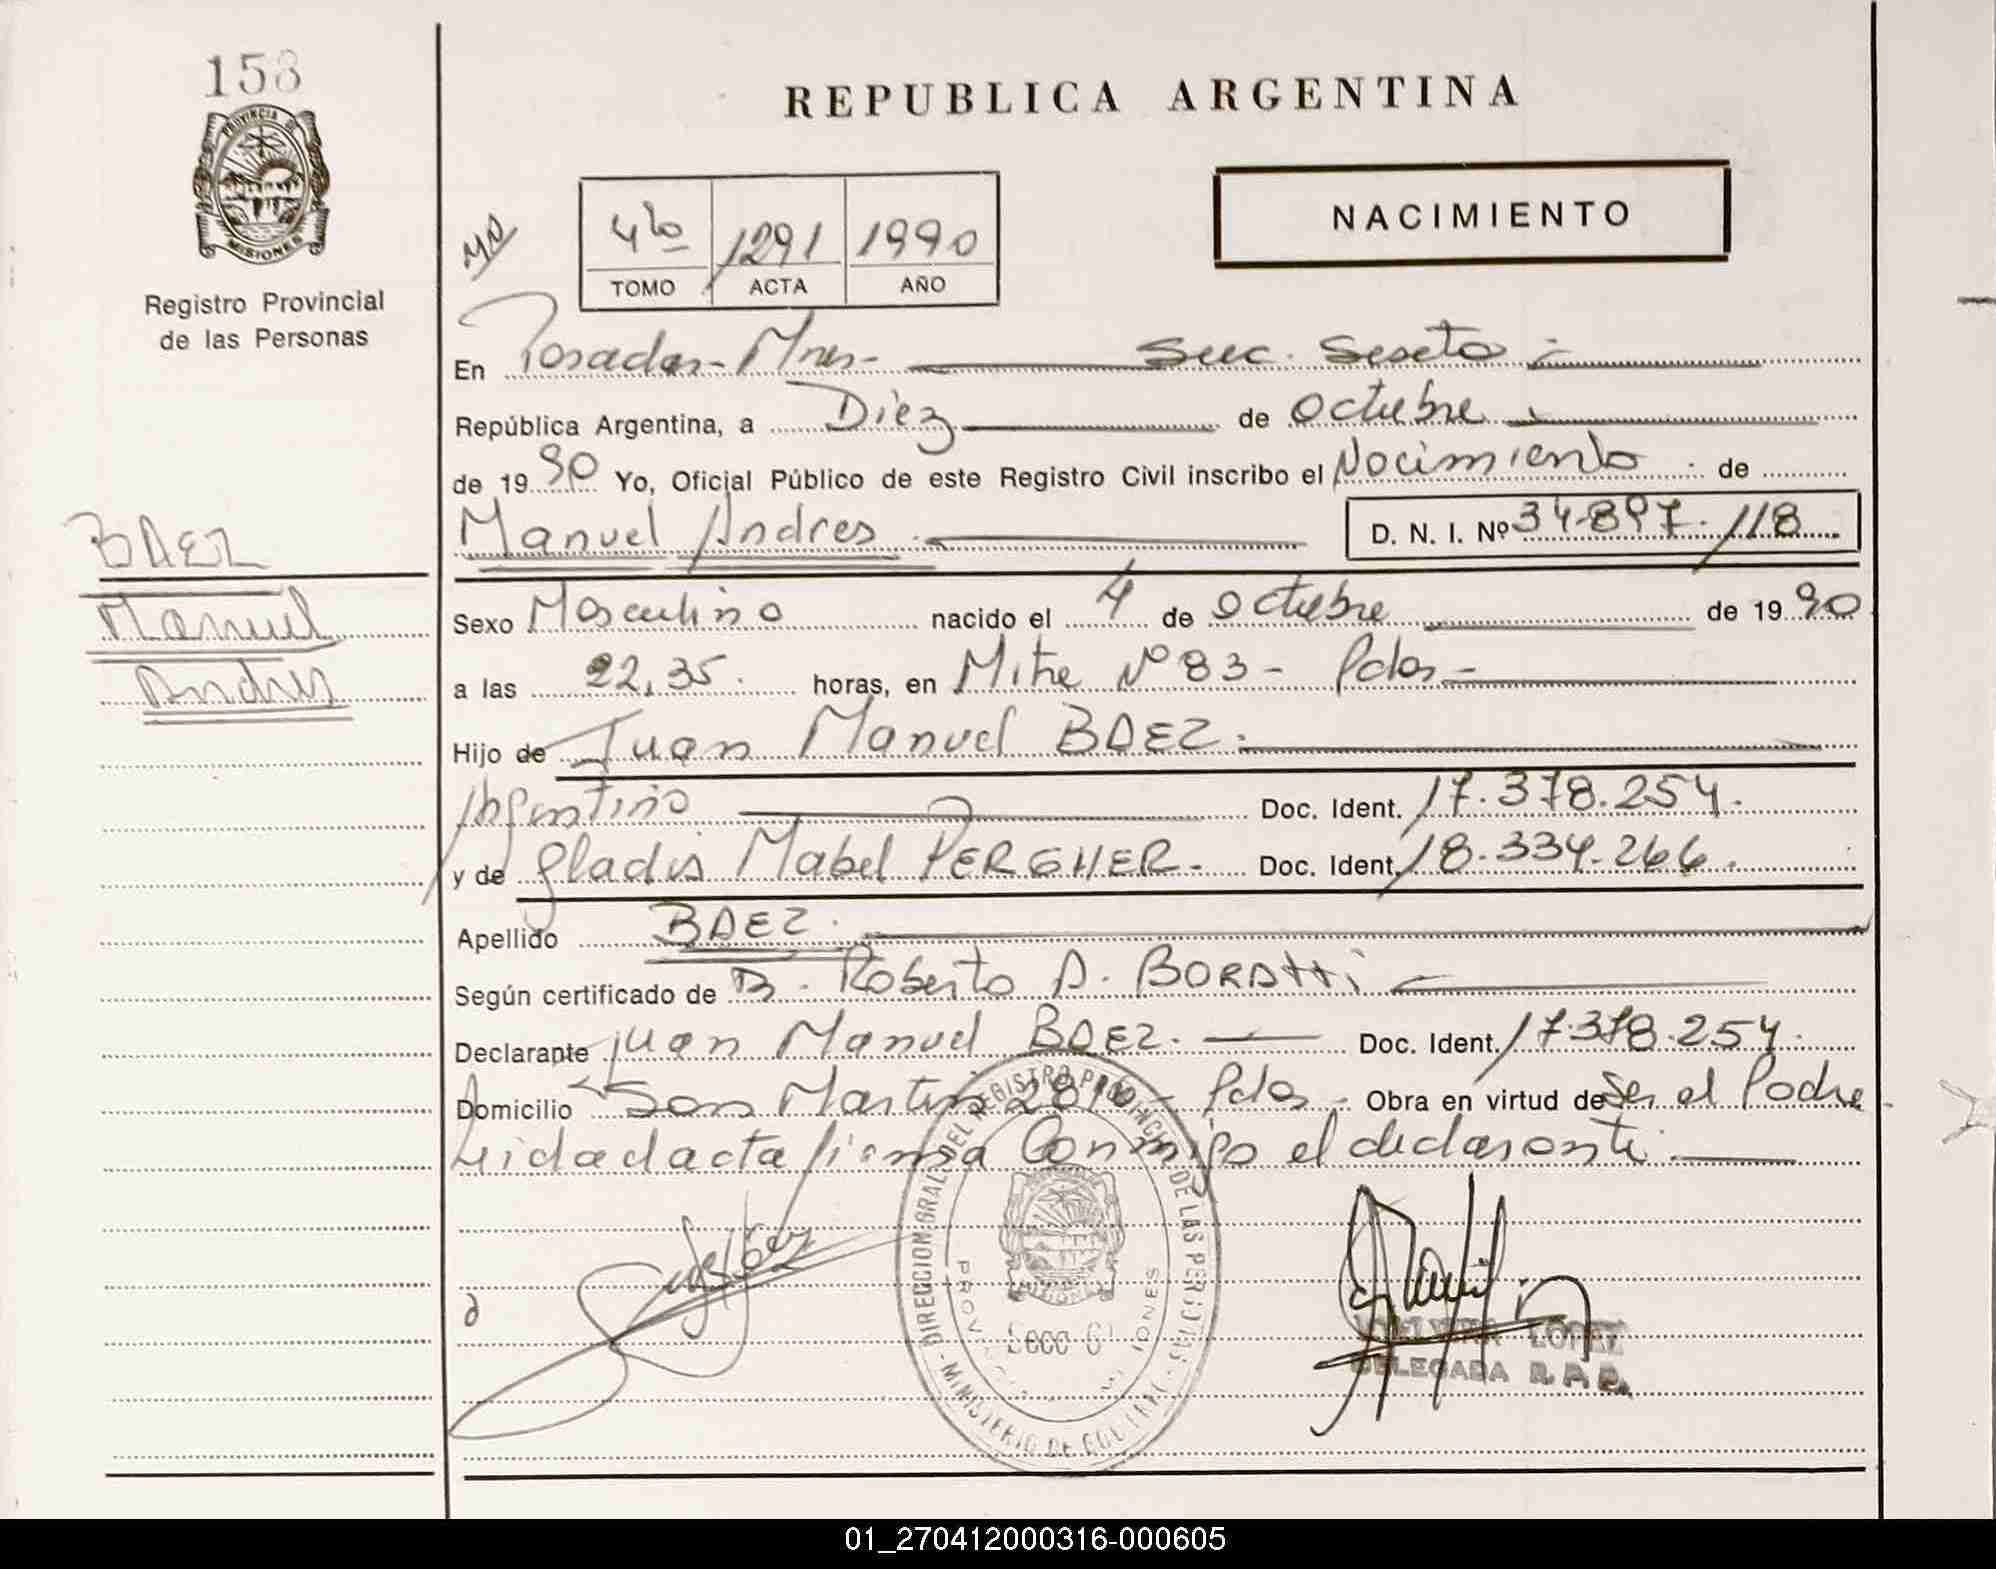 158
PROVINCIA DE
MISIONES
Registro Provincial
de las Personas
REPUBLICA ARGENTINA
NACIMIENTO
4to 1291 1990
TOMO ACTA AÑO
En Posadas - Mnes - Secc. Sexta
República Argentina, a Diez de octubre
de 1990 Yo, Oficial Público de este Registro Civil inscribo el Nacimiento de
Manuel Andres D. N. I. Nº 34.897.118
BAEZ
Manuel
Andres
Sexo Masculino nacido el 4 de octubre de 1990
a las 22,35 horas, en Mitre Nº 83 - Pdas -
Hijo de Juan Manuel BAEZ
Argentino Doc. Ident. 17.378.254.
y de Gladis Mabel PERGHER - Doc. Ident. 18.334.266.
Apellido BAEZ
Según certificado de Dr. Roberto A. BORATTi
Declarante Juan Manuel BAEZ. Doc. Ident. 17.378.254.
Domicilio San Martin - Pdas - Obra en virtud de Ser el Padre
Leida el acta firma Conmigo el declarante
DIRECCION GRAL. DEL REGISTRO PROVINCIAL DE LAS PERSONAS
MINISTERIO DE
LOPEZ
DELEGADA R. P. P.
01_270412000316-000605